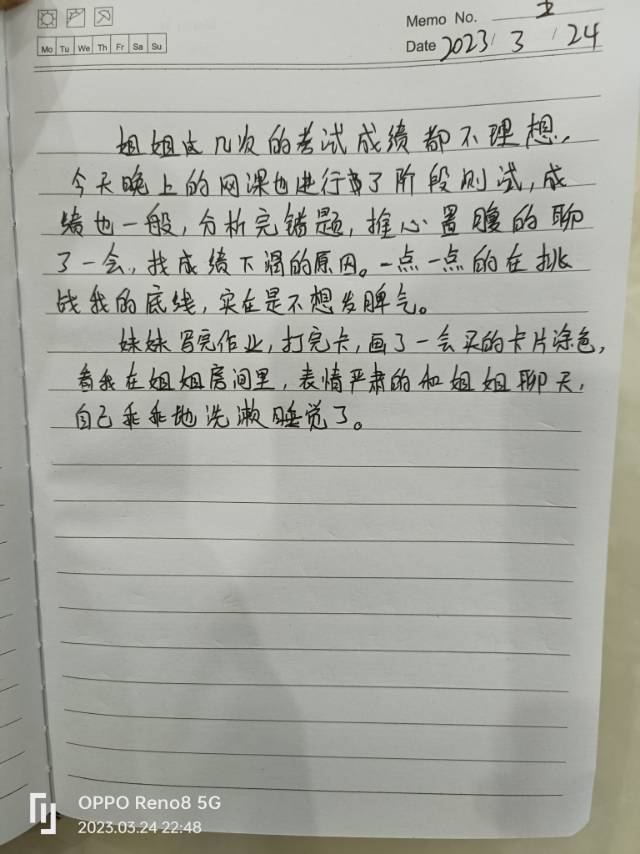 Memo No. 五
Mo Tu We Th Fr Sa Su
Date 2023 / 3 / 24
姐姐这几次的考试成绩都不理想,
今天晚上的网课也进行了阶段测试,成
绩也一般,分析完错题,推心置腹的聊
了一会,找成绩下滑的原因。一点一点的在挑
战我的底线,实在是不想发脾气。
妹妹写完作业,打完卡,画了一会买的卡片涂色,
看我在姐姐房间里,表情严肃的和姐姐聊天,
自己乖乖地洗漱睡觉了。
OPPO Reno8 5G
2023.03.24 22:48